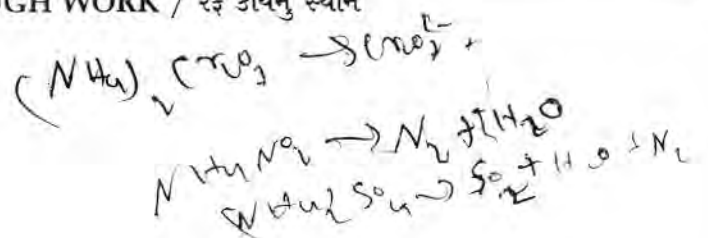 UGH WORK / રફ કાર્યનું સ્થાન
(NH4)2 CrO3 → CrO4^2- +
NH4NO2 → N2 + H2O
NH4)2 SO4 → SO2 + H2O + N2